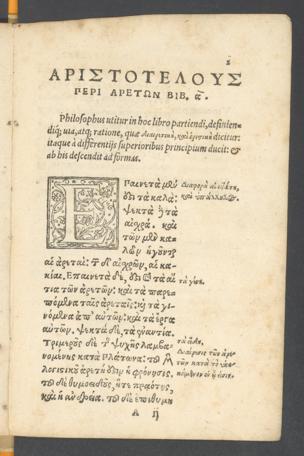 ΑΡΙΣΤΟΤΕΛΟΥΣ
ΠΕΡΙ ΑΡΕΤΩΝ ΒΙΒ. α.
Philosophus utitur in hoc libro partiendi, definien-
diq; uia, atq; ratione, quæ διαιρετικὴ, καὶ ὁριστικὴ dicitur:
itaque à differentijs superioribus principium ducit: &
ab his descendit ad formas.
ΕΠαινετὰ μὲν
ὅτι τὰ καλά:
ψεκτὰ ἢ τὰ
αἰσχρά. καὶ
τῶν μὲν κα-
λῶν ἡγοῦντ
αἱ ἀρεταί: τ αἰσχρῶν, αἱ κα-
κίαι. Επαινετὰ δὲ, ὅτι τὰ αἴ-
τια τῶν ἀρετῶν: καὶ τὰ παρε-
πόμενα ταῖς ἀρεταῖς: κὶ τὰ γι-
νόμενα ἀπ' αὐτῶν: καὶ τὰ ἔργα
αὐτῶν. ψεκτὰ δὲ, τὰ ἐναντία.
Τριμεροῦς δὲ τ ψυχῆς λαμβα-
νομένης κατὰ Πλάτωνα: τοῦ
λογιστικοῦ ἀρετή ὅτιν ἡ φρόνησις.
τοῦ δὲ θυμοειδοῦς, ἥτε πραότης,
καὶ ἡ ἀνδρεία. τοῦ δὲ ἐπιθυμη
A ij